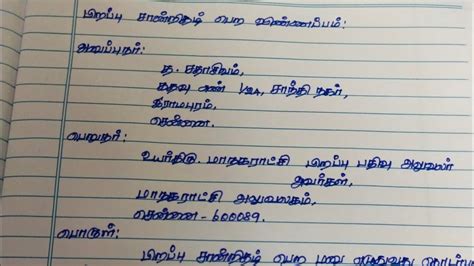 பிறப்பு சான்றிதழ் பெற விண்ணப்பம்:
அனுப்புநர்:
த. சதாசிவம்,
கதவு எண் 1/2A, சாந்தி நகர்,
ராமபுரம்,
சென்னை.
பெறுநர்:
உயர்திரு. மாநகராட்சி பிறப்பு பதிவு அலுவலர்
அவர்கள்,
மாநகராட்சி அலுவலகம்,
சென்னை - 600089.
பொருள்:
பிறப்பு சான்றிதழ் பெற மனு எழுதுவது தொடர்பா